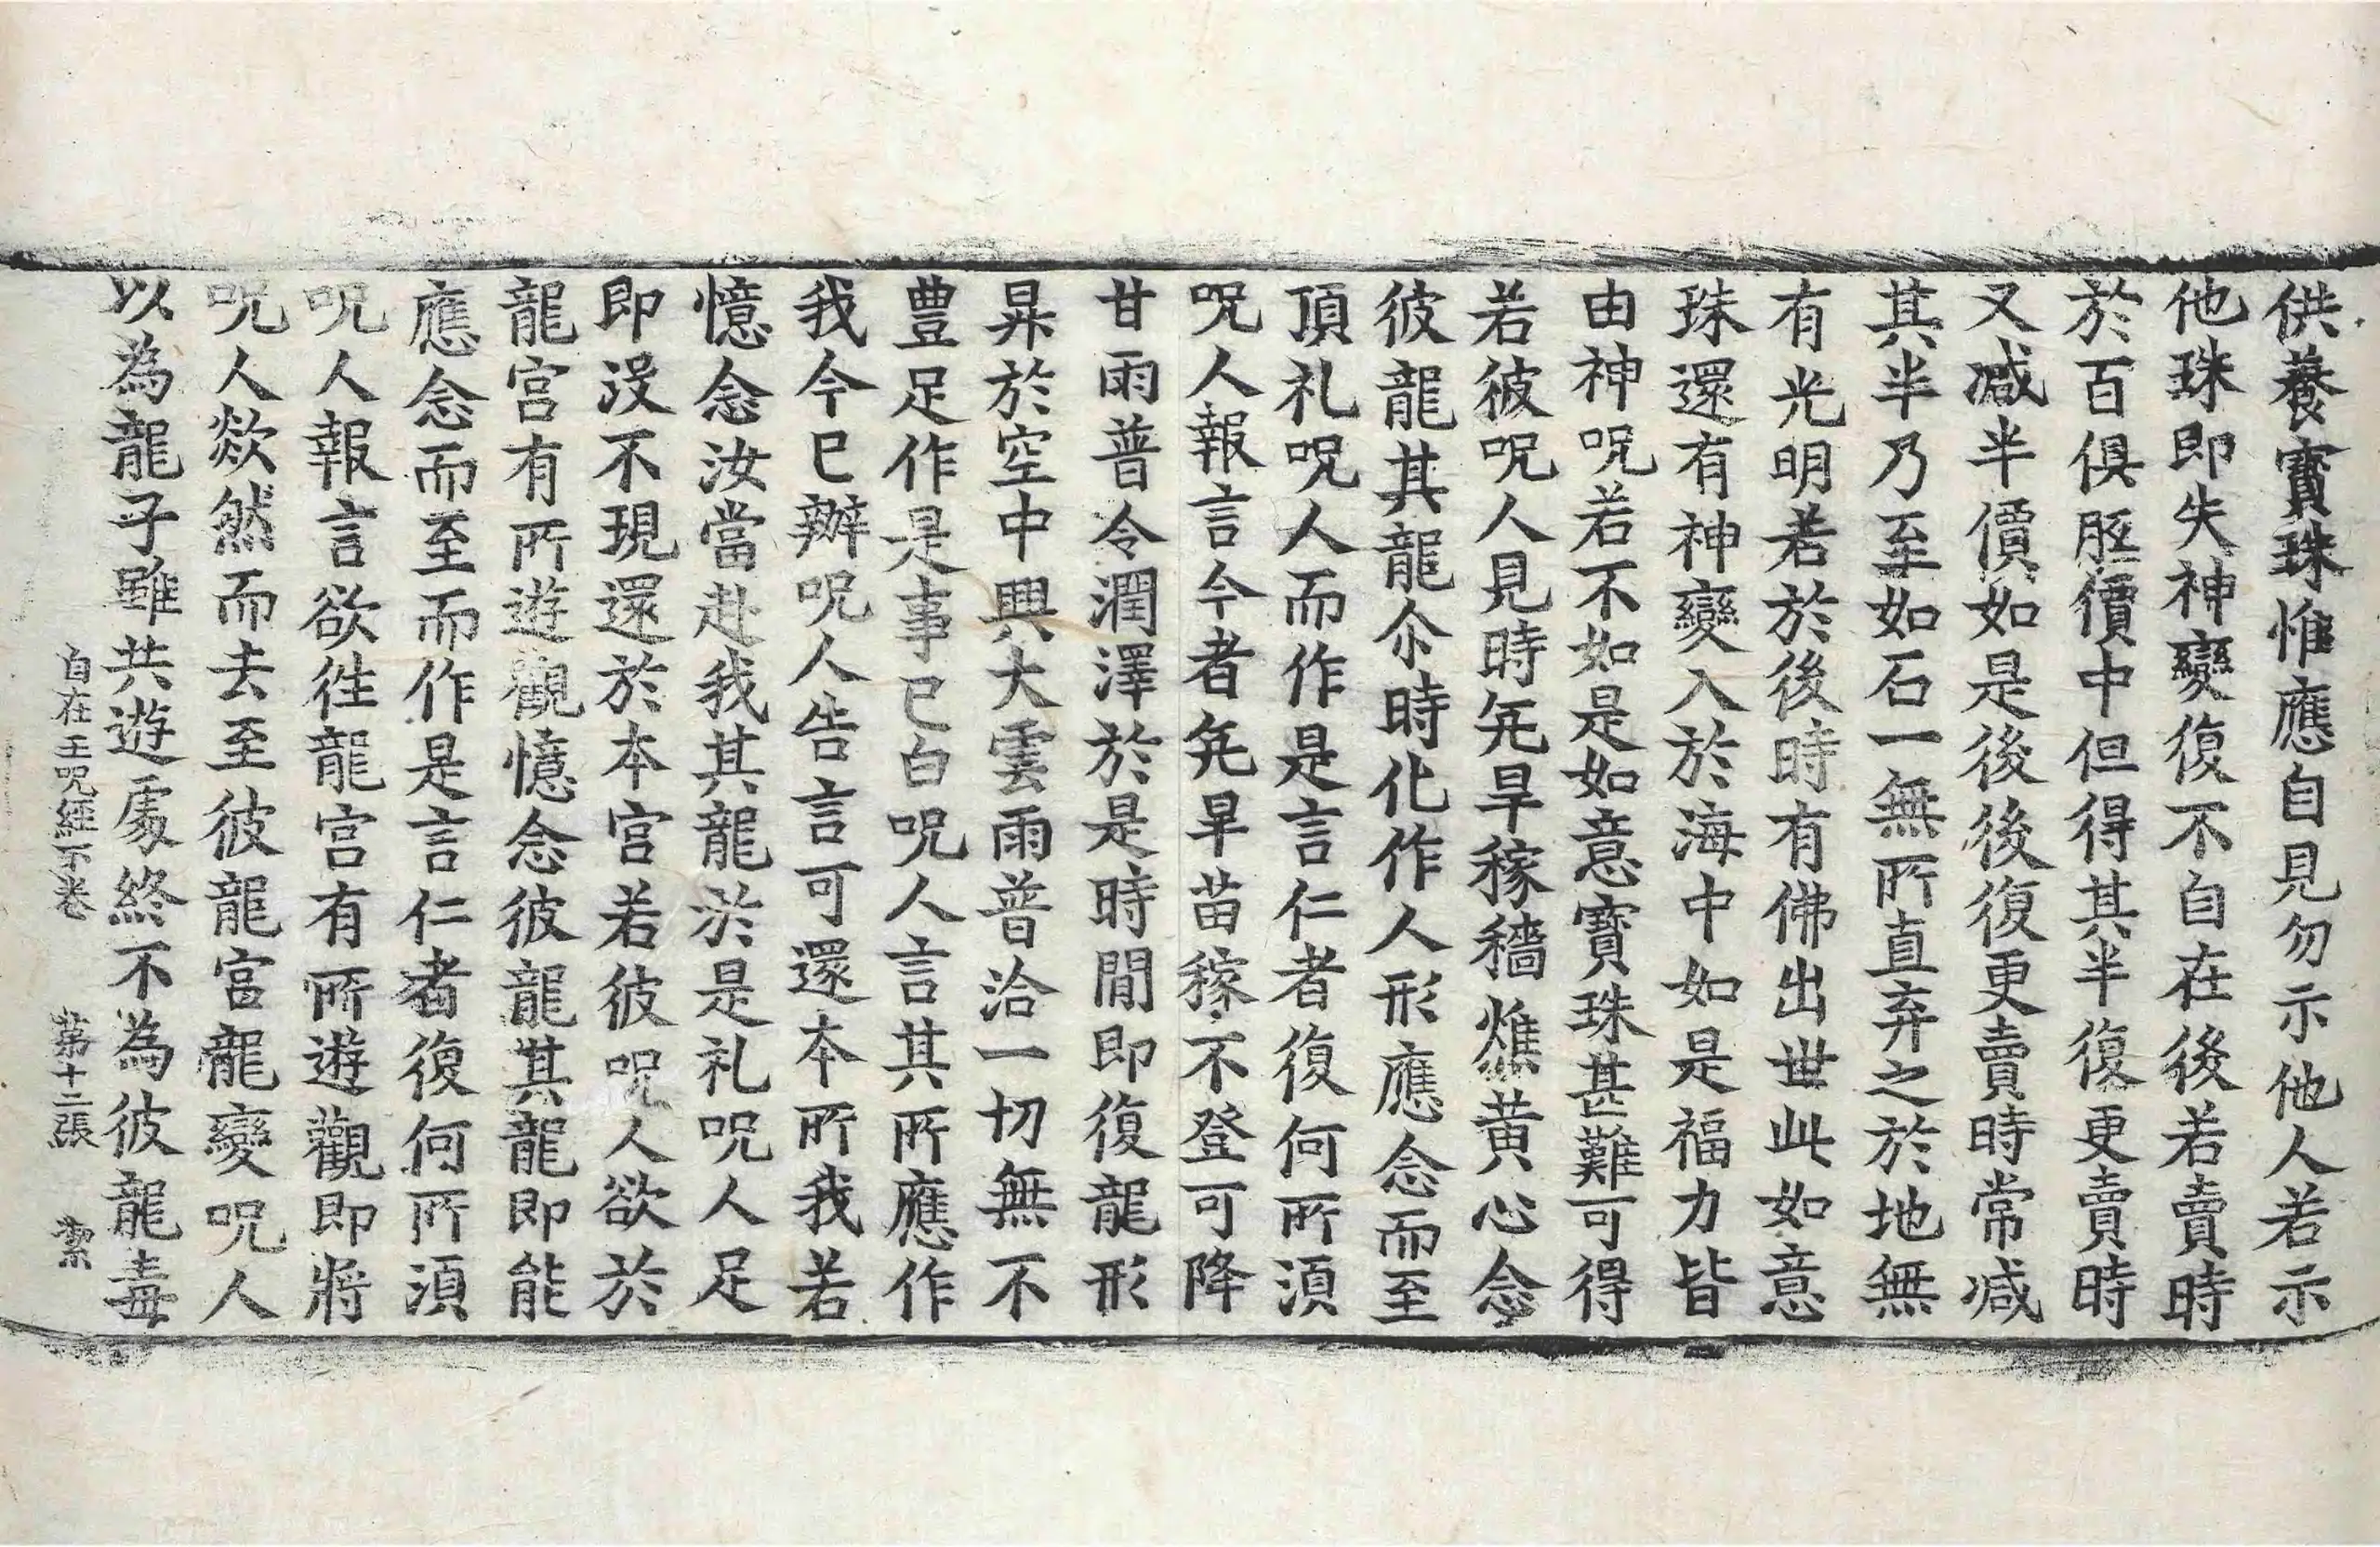 供養寶珠惟應自見勿示他人若示
他珠即失神變復不自在後若賣時
於百俱胝價中但得其半復更賣時
又減半價如是後後復更賣時常減
其半乃至如石一無所直弃之於地無
有光明若於後時有佛出世此如意
珠還有神變入於海中如是福力皆
由神呪若不如是如意寶珠甚難可得
若彼呪人見時旡旱稼穡燋黃心念
彼龍其龍尒時化作人形應念而至
頂礼呪人而作是言仁者復何所須
呪人報言今者旡旱苗稼不登可降
甘雨普令潤澤於是時間即復龍形
昇於空中興大雲雨普洽一切無不
豊足作是事已白呪人言其所應作
我今已辦呪人告言可還本所我若
憶念汝當赴我其龍於是礼呪人足
即没不現還於本宮若彼呪人欲於
龍宮有所遊觀憶念彼龍其龍即能
應念而至而作是言仁者復何所須
呪人報言欲往龍宮有所遊觀即將
呪人欻然而去至彼龍宮龍變呪人
以為龍子雖共遊處終不為彼龍毒
自在王呪經下卷 第十二張 潔